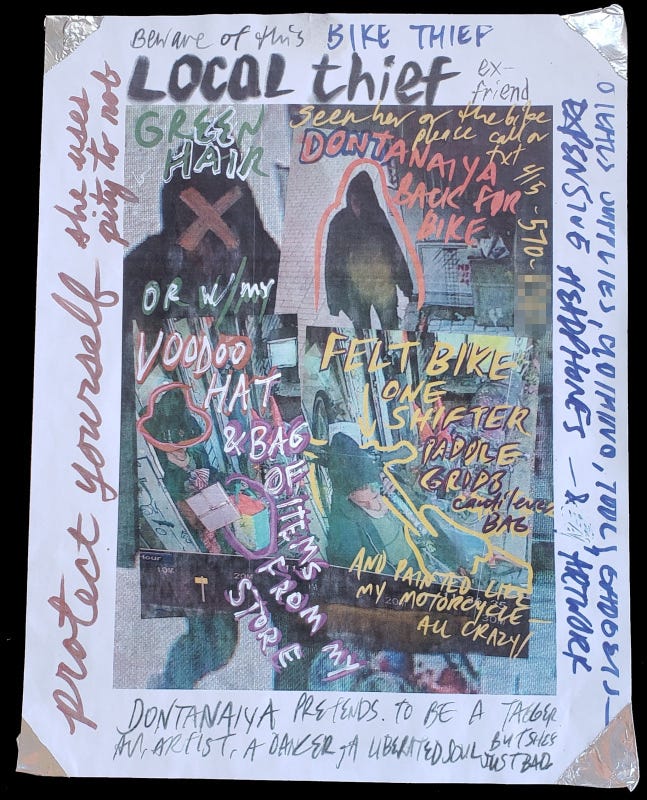 Beware of this BIKE THIEF
LOCAL thief
ex-
friend
GREEN
HAIR
OR W/ MY
VOODOO
HAT
& BAG
OF ITEMS
FROM MY
STORE
Seen her or the bike
please call or
txt
570-
DONTANAIYA
BACK FOR
BIKE
FELT BIKE
ONE
SHIFTER
PADDLE
GRIPS
cantilever
BAG
AND PAINTED LIKE
MY MOTORCYCLE—
ALL CRAZY!
protect yourself she uses
pity to rob
SUPPLIES, TOOLS, GADGETS—
EXPENSIVE HEADPHONES — & ARTWORK
DONTANAIYA PRETENDS TO BE A TAGGER
AN ARTIST, A DANCER, A LIBERATED SOUL BUT SHES
JUST BAD